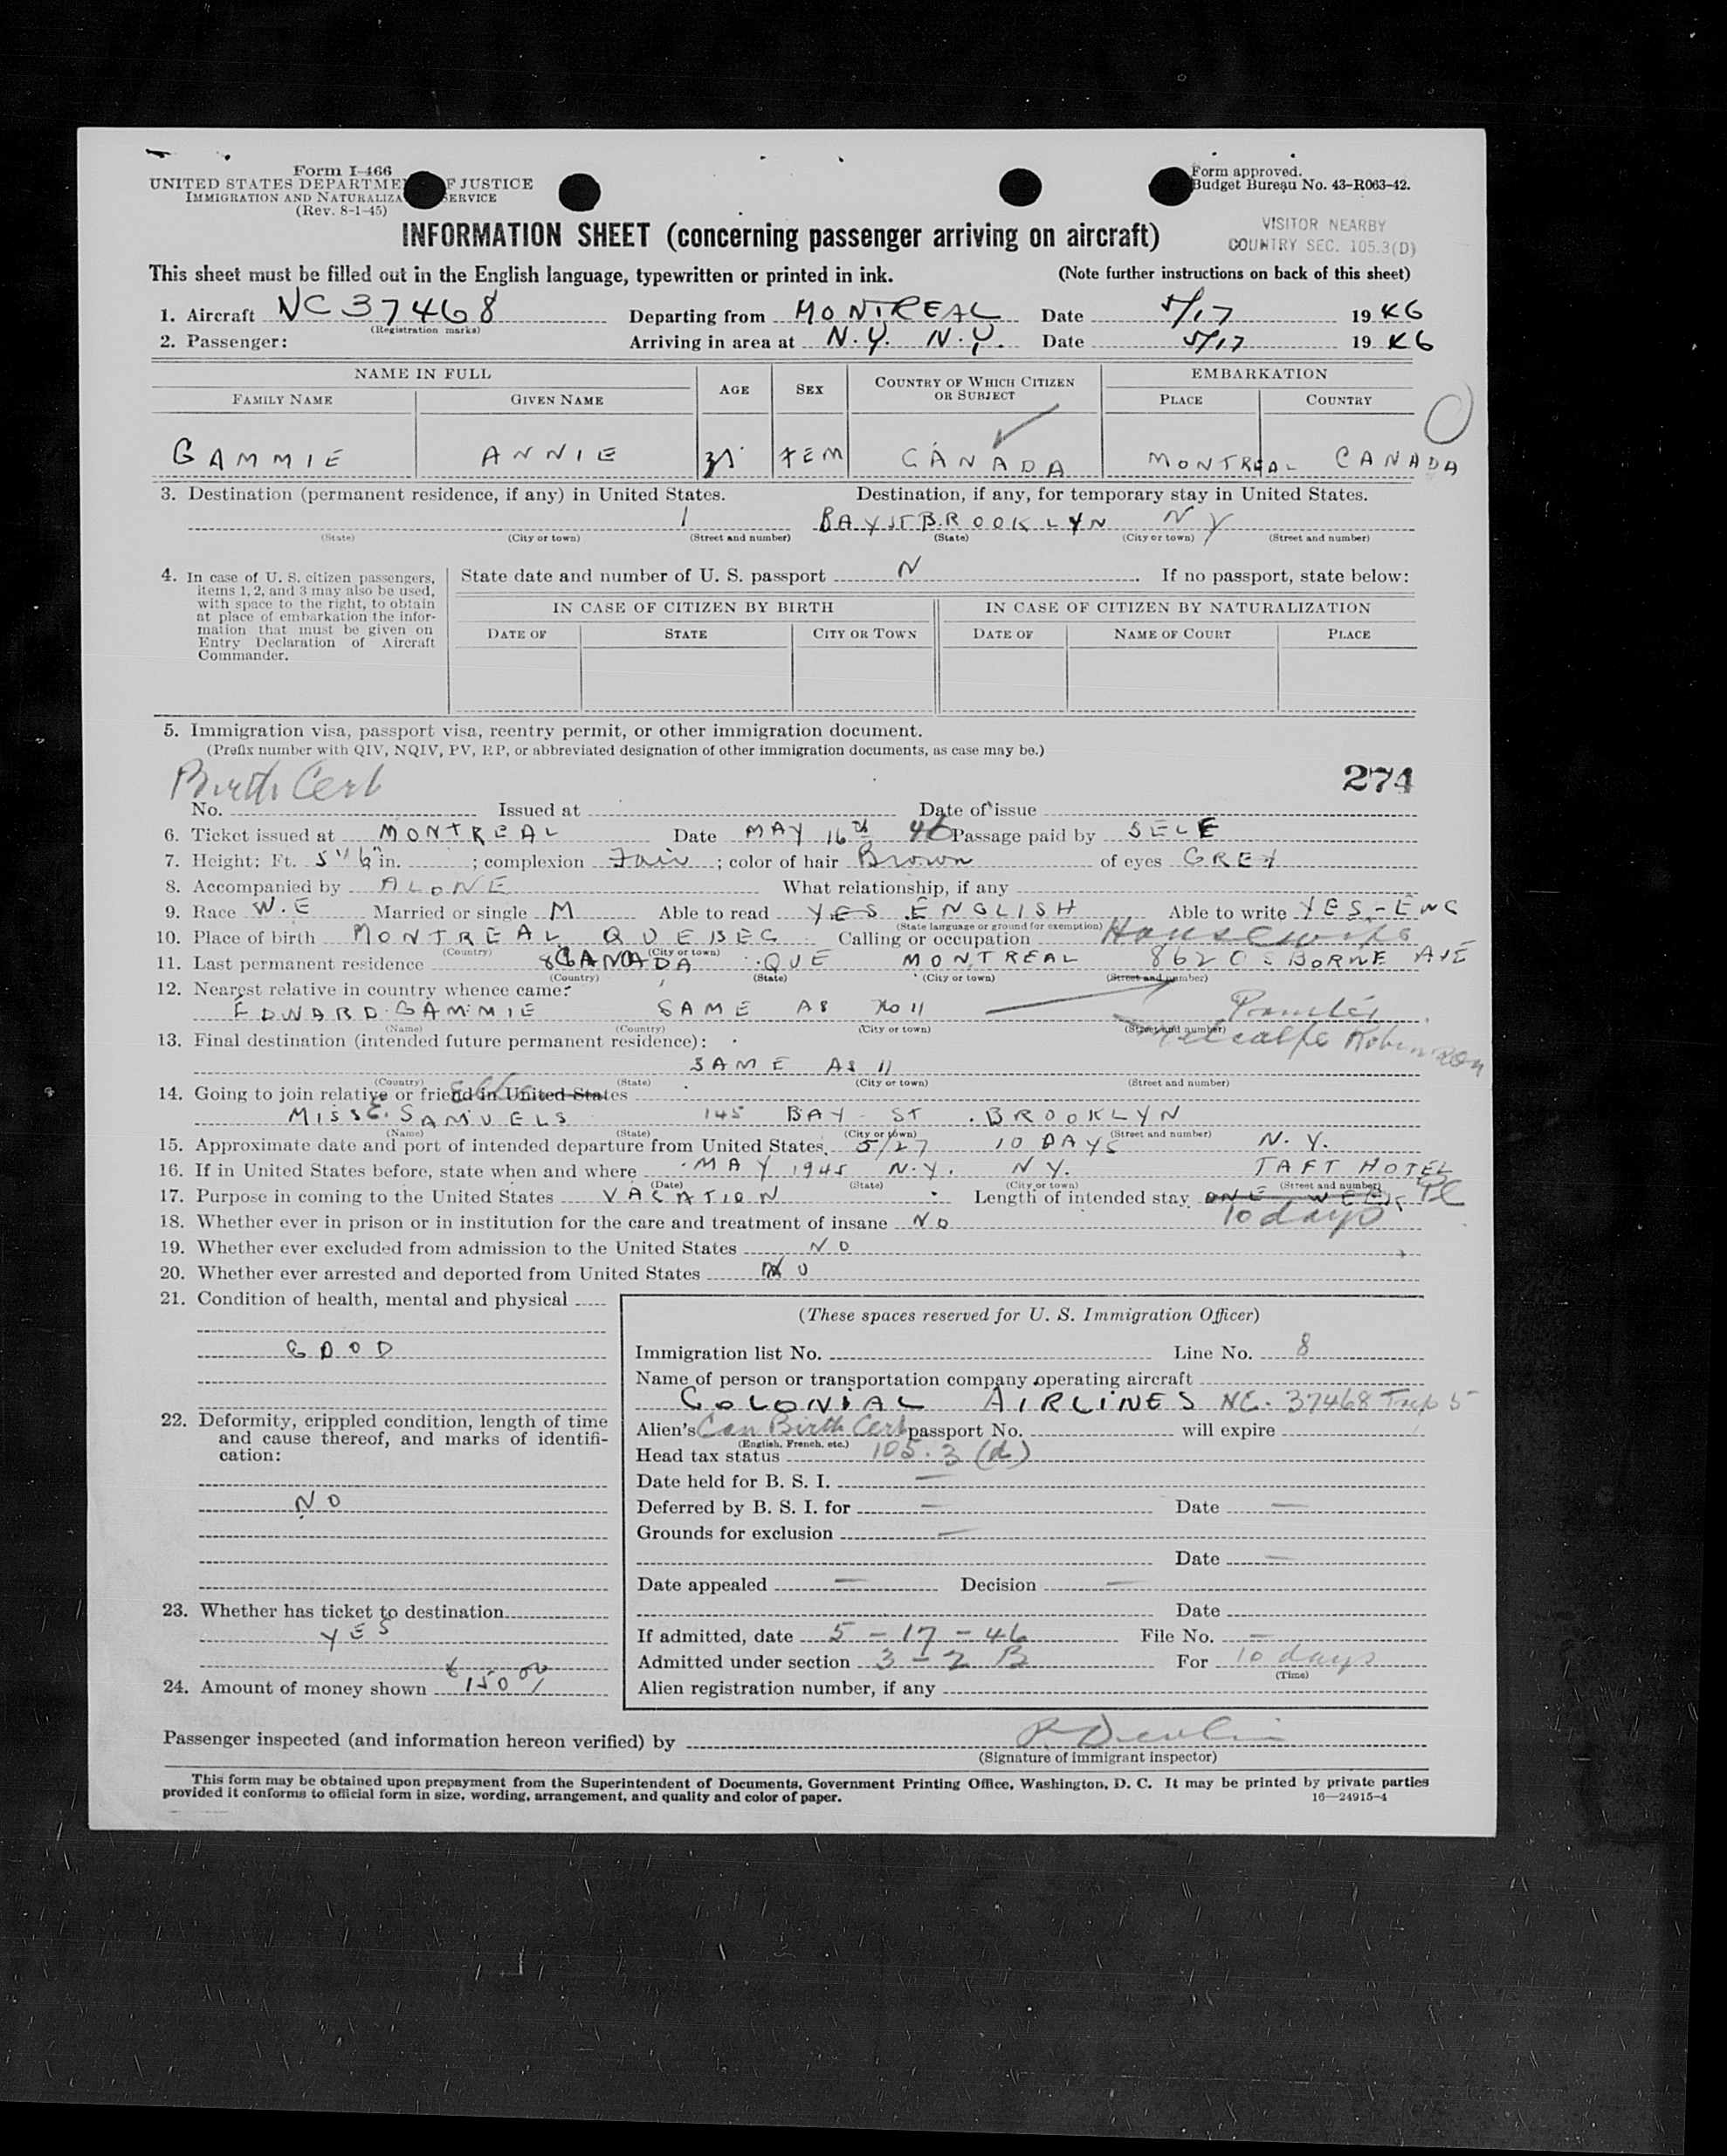 Form I-466
UNITED STATES DEPARTME F JUSTICE
IMMIGRATION AND NATURALIZA SERVICE
(Rev. 8-1-45)
Form approved.
Budget Bureau No. 43-R063-42.
INFORMATION SHEET (concerning passenger arriving on aircraft)
VISITOR NEARBY
COUNTRY SEC. 105.3(D)
This sheet must be filled out in the English language, typewritten or printed in ink. (Note further instructions on back of this sheet)
1. Aircraft NC37468 Departing from MONTREAL Date 5/17 1946
(Registration marks)
2. Passenger: Arriving in area at N.Y. N.Y. Date 5/17 1946
NAME IN FULL AGE SEX COUNTRY OF WHICH CITIZEN OR SUBJECT EMBARKATION
FAMILY NAME GIVEN NAME PLACE COUNTRY
GAMMIE ANNIE FEM CANADA MONTREAL CANADA
3. Destination (permanent residence, if any) in United States. Destination, if any, for temporary stay in United States.
BAY ST BROOKLYN NY
(State) (City or town) (Street and number) (State) (City or town) (Street and number)
4. In case of U. S. citizen passengers, items 1, 2, and 3 may also be used, with space to the right, to obtain at place of embarkation the information that must be given on Entry Declaration of Aircraft Commander.
State date and number of U. S. passport N If no passport, state below:
IN CASE OF CITIZEN BY BIRTH IN CASE OF CITIZEN BY NATURALIZATION
DATE OF STATE CITY OR TOWN DATE OF NAME OF COURT PLACE
5. Immigration visa, passport visa, reentry permit, or other immigration document.
(Prefix number with QIV, NQIV, PV, RP, or abbreviated designation of other immigration documents, as case may be.)
Birth Cert 274
No. Issued at Date of issue
6. Ticket issued at MONTREAL Date MAY 16th 46 Passage paid by SELF
7. Height: Ft. 5' 6" in. ; complexion Fair ; color of hair Brown of eyes GREY
8. Accompanied by ALONE What relationship, if any
9. Race W.E Married or single M Able to read YES ENGLISH Able to write YES-ENG
(State language or ground for exemption)
10. Place of birth MONTREAL QUEBEC Calling or occupation Housewife
(Country) (City or town)
11. Last permanent residence CANADA QUE MONTREAL 862 OSBORNE AVE
(Country) (State) (City or town) (Street and number)
12. Nearest relative in country whence came:
EDWARD GAMMIE SAME AS No 11
(Name) (Country) (City or town) (Street and number)
Metcalfe Robinson
13. Final destination (intended future permanent residence):
SAME AS 11
(Country) (State) (City or town) (Street and number)
14. Going to join relative or friend in United States
MISS E. SAMUELS 145 BAY ST. BROOKLYN
(Name) (State) (City or town) (Street and number)
15. Approximate date and port of intended departure from United States. 5/27 10 DAYS N.Y.
16. If in United States before, state when and where MAY 1945 N.Y. NY. TAFT HOTEL
(Date) (State) (City or town) (Street and number)
17. Purpose in coming to the United States VACATION Length of intended stay ONE WEEK
10 days
18. Whether ever in prison or in institution for the care and treatment of insane NO
19. Whether ever excluded from admission to the United States NO
20. Whether ever arrested and deported from United States NO
21. Condition of health, mental and physical
GOOD
22. Deformity, crippled condition, length of time and cause thereof, and marks of identification:
NO
23. Whether has ticket to destination
YES
24. Amount of money shown $150 00
(These spaces reserved for U. S. Immigration Officer)
Immigration list No. Line No. 8
Name of person or transportation company operating aircraft
COLONIAL AIRLINES NC. 37468 Trip 5
Alien's Can Birth Cert passport No. will expire
(English, French, etc.)
Head tax status 105.3 (d)
Date held for B. S. I. —
Deferred by B. S. I. for — Date —
Grounds for exclusion —
Date —
Date appealed — Decision —
Date
If admitted, date 5 - 17 - 46 File No. —
Admitted under section 3 - 2 B For 10 days
(Time)
Alien registration number, if any
Passenger inspected (and information hereon verified) by P. Devlin
(Signature of immigrant inspector)
This form may be obtained upon prepayment from the Superintendent of Documents, Government Printing Office, Washington, D. C. It may be printed by private parties
provided it conforms to official form in size, wording, arrangement, and quality and color of paper. 16—24915-4